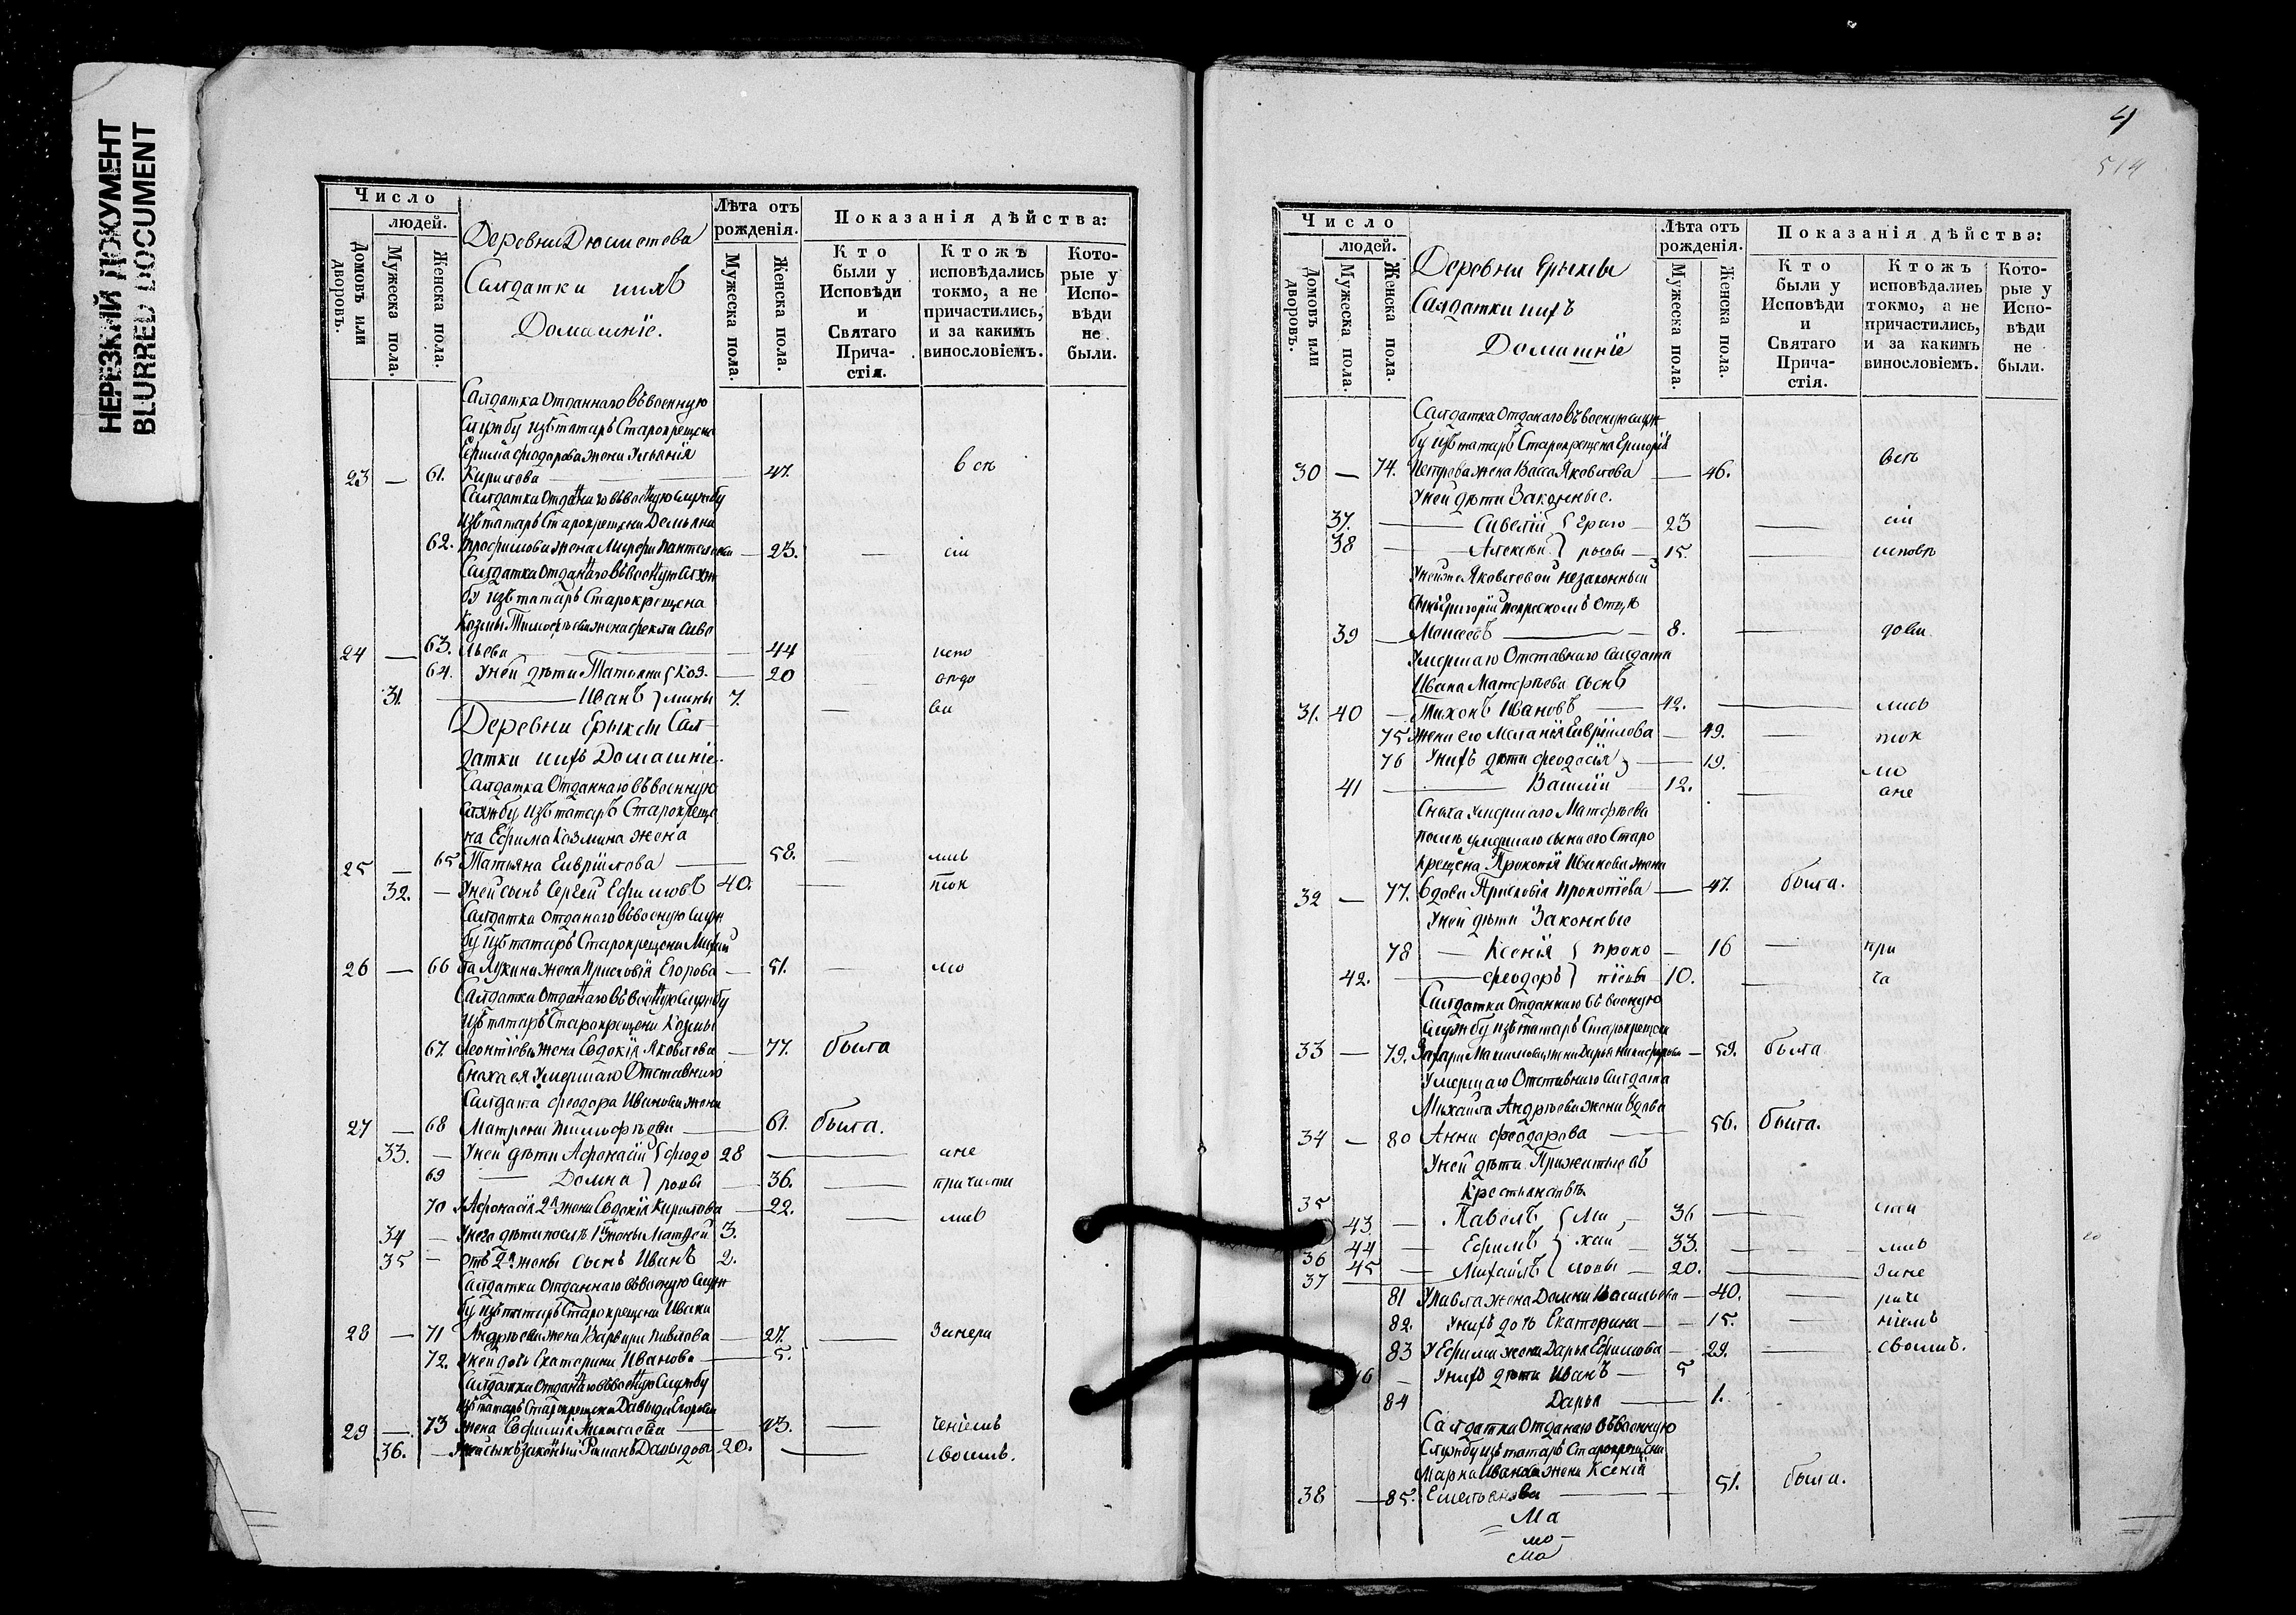 НЕРЕЗКИЙ ДОКУМЕНТ
BLURRED DOCUMENT
Число
людей.
Домовъ или дворовъ.
Мужеска пола.
Женска пола.
Деревни Дюсметева
Салдатки ихъ
Домашніе.
Лѣта отъ рожденія.
Мужеска пола.
Женска пола.
Показанія дѣйства:
Кто были у Исповѣди и Святаго Прича-стія.
Ктожъ исповѣдались токмо, а не причастились, и за какимъ винословіемъ.
Кото-рые у Испо-вѣди не были.
Салдатка Отданнаго въ военную
службу изъ татаръ Старокрещена
Ефима Феодорова жена Ульянія
23 — 61. Кирилова — 47. вси
Салдатка Отданаго въ военую службу
изъ татаръ Старокрещена Демьяна
62. Трофимова жена — 23. — сіи
Салдатка Отданаго въ военую служ
бу изъ татаръ Старокрещена
Козмы жена Фекла Саве
24 — 63. льева — 44 испо
64. У ней дѣти Татьяна Коз. — 20 — вѣдо
31. — Иванъ мины 7. — ва
Деревни Ерыксы Сал
датки ихъ Домашніе.
Салдатка Отданнаго въ военную
службу изъ татаръ Староркеще
на Ефима Козмина жена
25 — 65 Татьяна Гаврілова — 58. — лись
32. — У ней сынъ Сергей Ефимовъ 40. — ток
Салдатка отданаго въ военую служ
бу изъ татаръ Старокрещена Михаи
26 — 66 ла Лукина жена Прасковія Егорова — 51. — мо
Салдатка Отданаго въ военую службу
изъ татаръ Старокрещена Козмы
67. Леонтіева жена Евдокія Яковлева — 77. была
Снаха ея Умершаго Отставнаго
Салдата Феодора Иванова жена
27 — 68 Матрена Тимофѣева — 61. была.
33. — У ней дѣти Афонасій Феодо 28 — ане
69 — Домна ровы — 36. — причасти
70 У Афонасія 2я жена Евдокія Кирилова — 22. — лись
34 — У него дѣти послѣ 1й жены Матфей 3.
35 — Отъ 2й жены сынъ Иванъ 2.
Салдатка Отданнаго въ военую служ
бу изъ татаръ Старокрещена Ивана
28 — 71 Андрѣева жена Варвара Павлова — 27. — Занера
72. У ней дочь Екатерина Иванова — 5.
Салдатка Отданаго въ военую службу
изъ татаръ Старокрещена Давыда Егорова
29 — 73 жена Евфимія — 43. — ченіемъ
36. — У ней сынъ законый Романъ Давыдовъ 20. — своимъ.
4
514
Число
людей.
Домовъ или дворовъ.
Мужеска пола.
Женска пола.
Деревни Ерыксы
Салдатки ихъ
Домашніе
Лѣта отъ рожденія.
Мужеска пола.
Женска пола.
Показанія дѣйства:
Кто были у Исповѣди и Святаго Прича-стія.
Ктожъ исповѣдались токмо, а не причастились, и за какимъ винословіемъ.
Кото-рые у Испо-вѣди не были.
Салдатка Отданаго въ военую служ
бу изъ татаръ Старокрещена Григорія
30 — 74. Петрова жена Васса Яковлева — 46. всѣ
У ней дѣти Законные.
37. — Савелій Григо — 23 — сіи
38 — Алексѣй рьевы — 15. — исповѣ
У нейже Яковлевой незаконный
сынъ Григорій по крескомъ Отцѣ
39 — Моисеевъ — 8. — дова
Умершаго Отставнаго Салдата
Ивана Матфѣева сынъ
31. 40 — Тихонъ Ивановъ — 42. — лись
75 Жена его Меланія Гаврілова — 49. — ток
76 У нихъ дѣти Феодосія — 19. мо
41 — Василій — 12. — ане
Снаха Умершаго Матфѣева
послѣ умершаго сына его Старо
крещена Прокопія Иванова жена
32 — 77. Вдова Прасковія Прокопіева — 47. была.
У ней дѣти Законные
78 — Ксенія проко — 16 — при
42. — Феодоръ піевы 10. — ча
Салдатка Отданнаго въ военую
службу изъ татаръ Старокрещена
33 — 79. Захара Максимова жена Дарья Никифорова — 59. была
Умершаго Отставнаго Салдата
Михайла Андрѣева жена Вдова
34 — 80 Анна Феодорова — 56. была.
У ней дѣти Прижитые въ
Крестьянствѣ
35 43 — Павелъ Ми — 36 — сти
36 44 — Ефимъ хаи — 33. — лись
37 45 — Михайлъ ловы — 20. — Зане
81 У Павла жена Домна Васильева — 40. — раче
82. У нихъ дочь Екатерина — 15. — ніемъ
83 У Ефима жена Дарья Ефимова — 29. — своимъ.
46 — У нихъ дѣти Иванъ — 5
84 Дарья — 1.
Салдатка Отданаго въ военную
Службу изъ татаръ Старокрещена
Марка Иванова жена Ксенія
38 — 85. Емельянова — 51. была.
Ма
мо